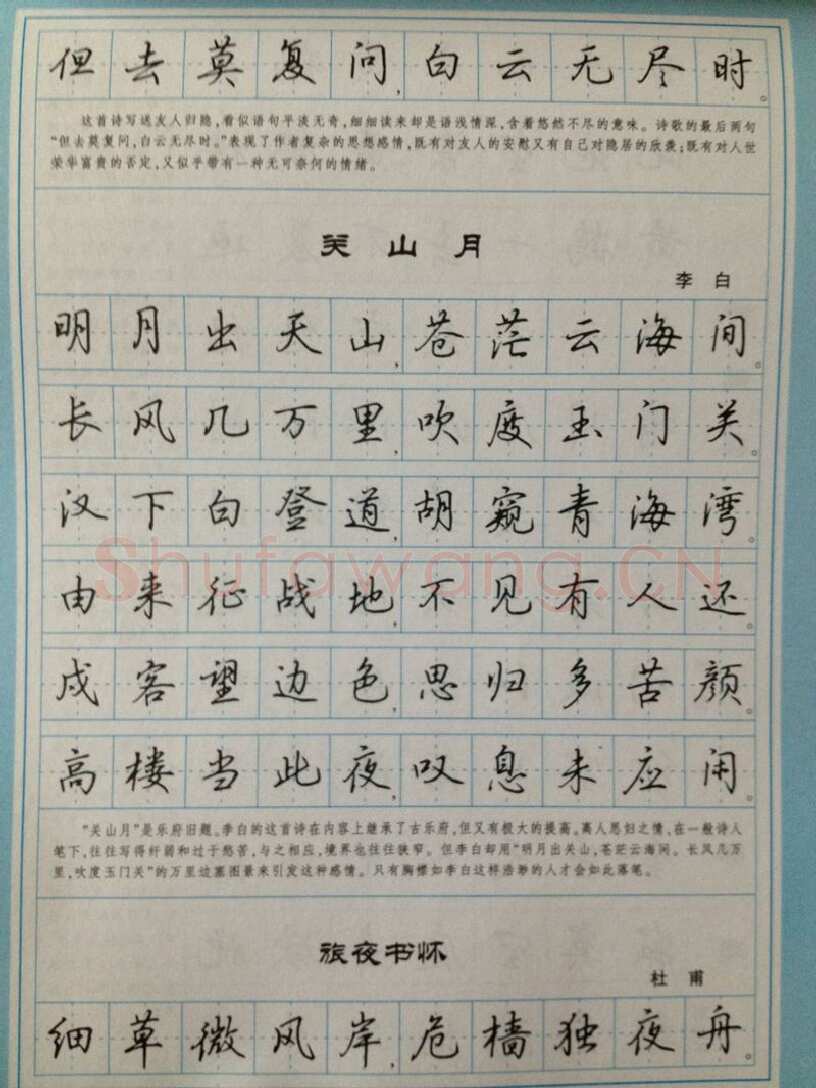 但去莫复问，白云无尽时。
这首诗写送友人归隐，看似语句平淡无奇，细细读来却是语浅情深，含着悠然不尽的意味。诗歌的最后两句
“但去莫复问，白云无尽时。”表现了作者复杂的思想感情，既有对友人的安慰又有自己对隐居的欣羡；既有对人世
荣华富贵的否定，又似乎带有一种无可奈何的情绪。
关山月
李白
明月出天山，苍茫云海间。
长风几万里，吹度玉门关。
汉下白登道，胡窥青海湾。
Shufawang.CN
由来征战地，不见有人还。
戍客望边色，思归多苦颜。
高楼当此夜，叹息未应闲。
“关山月”是乐府旧题。李白的这首诗在内容上继承了古乐府，但又有极大的提高。离人思妇之情，在一般诗人
笔下，往往写得纤弱和过于愁苦，与之相应，境界也往往狭窄。但李白却用“明月出关山，苍茫云海间。长风几万
里，吹度玉门关”的万里边塞图景来引发这种感情。只有胸襟如李白这样浩渺的人才会如此落笔。
旅夜书怀
杜甫
细草微风岸，危樯独夜舟。